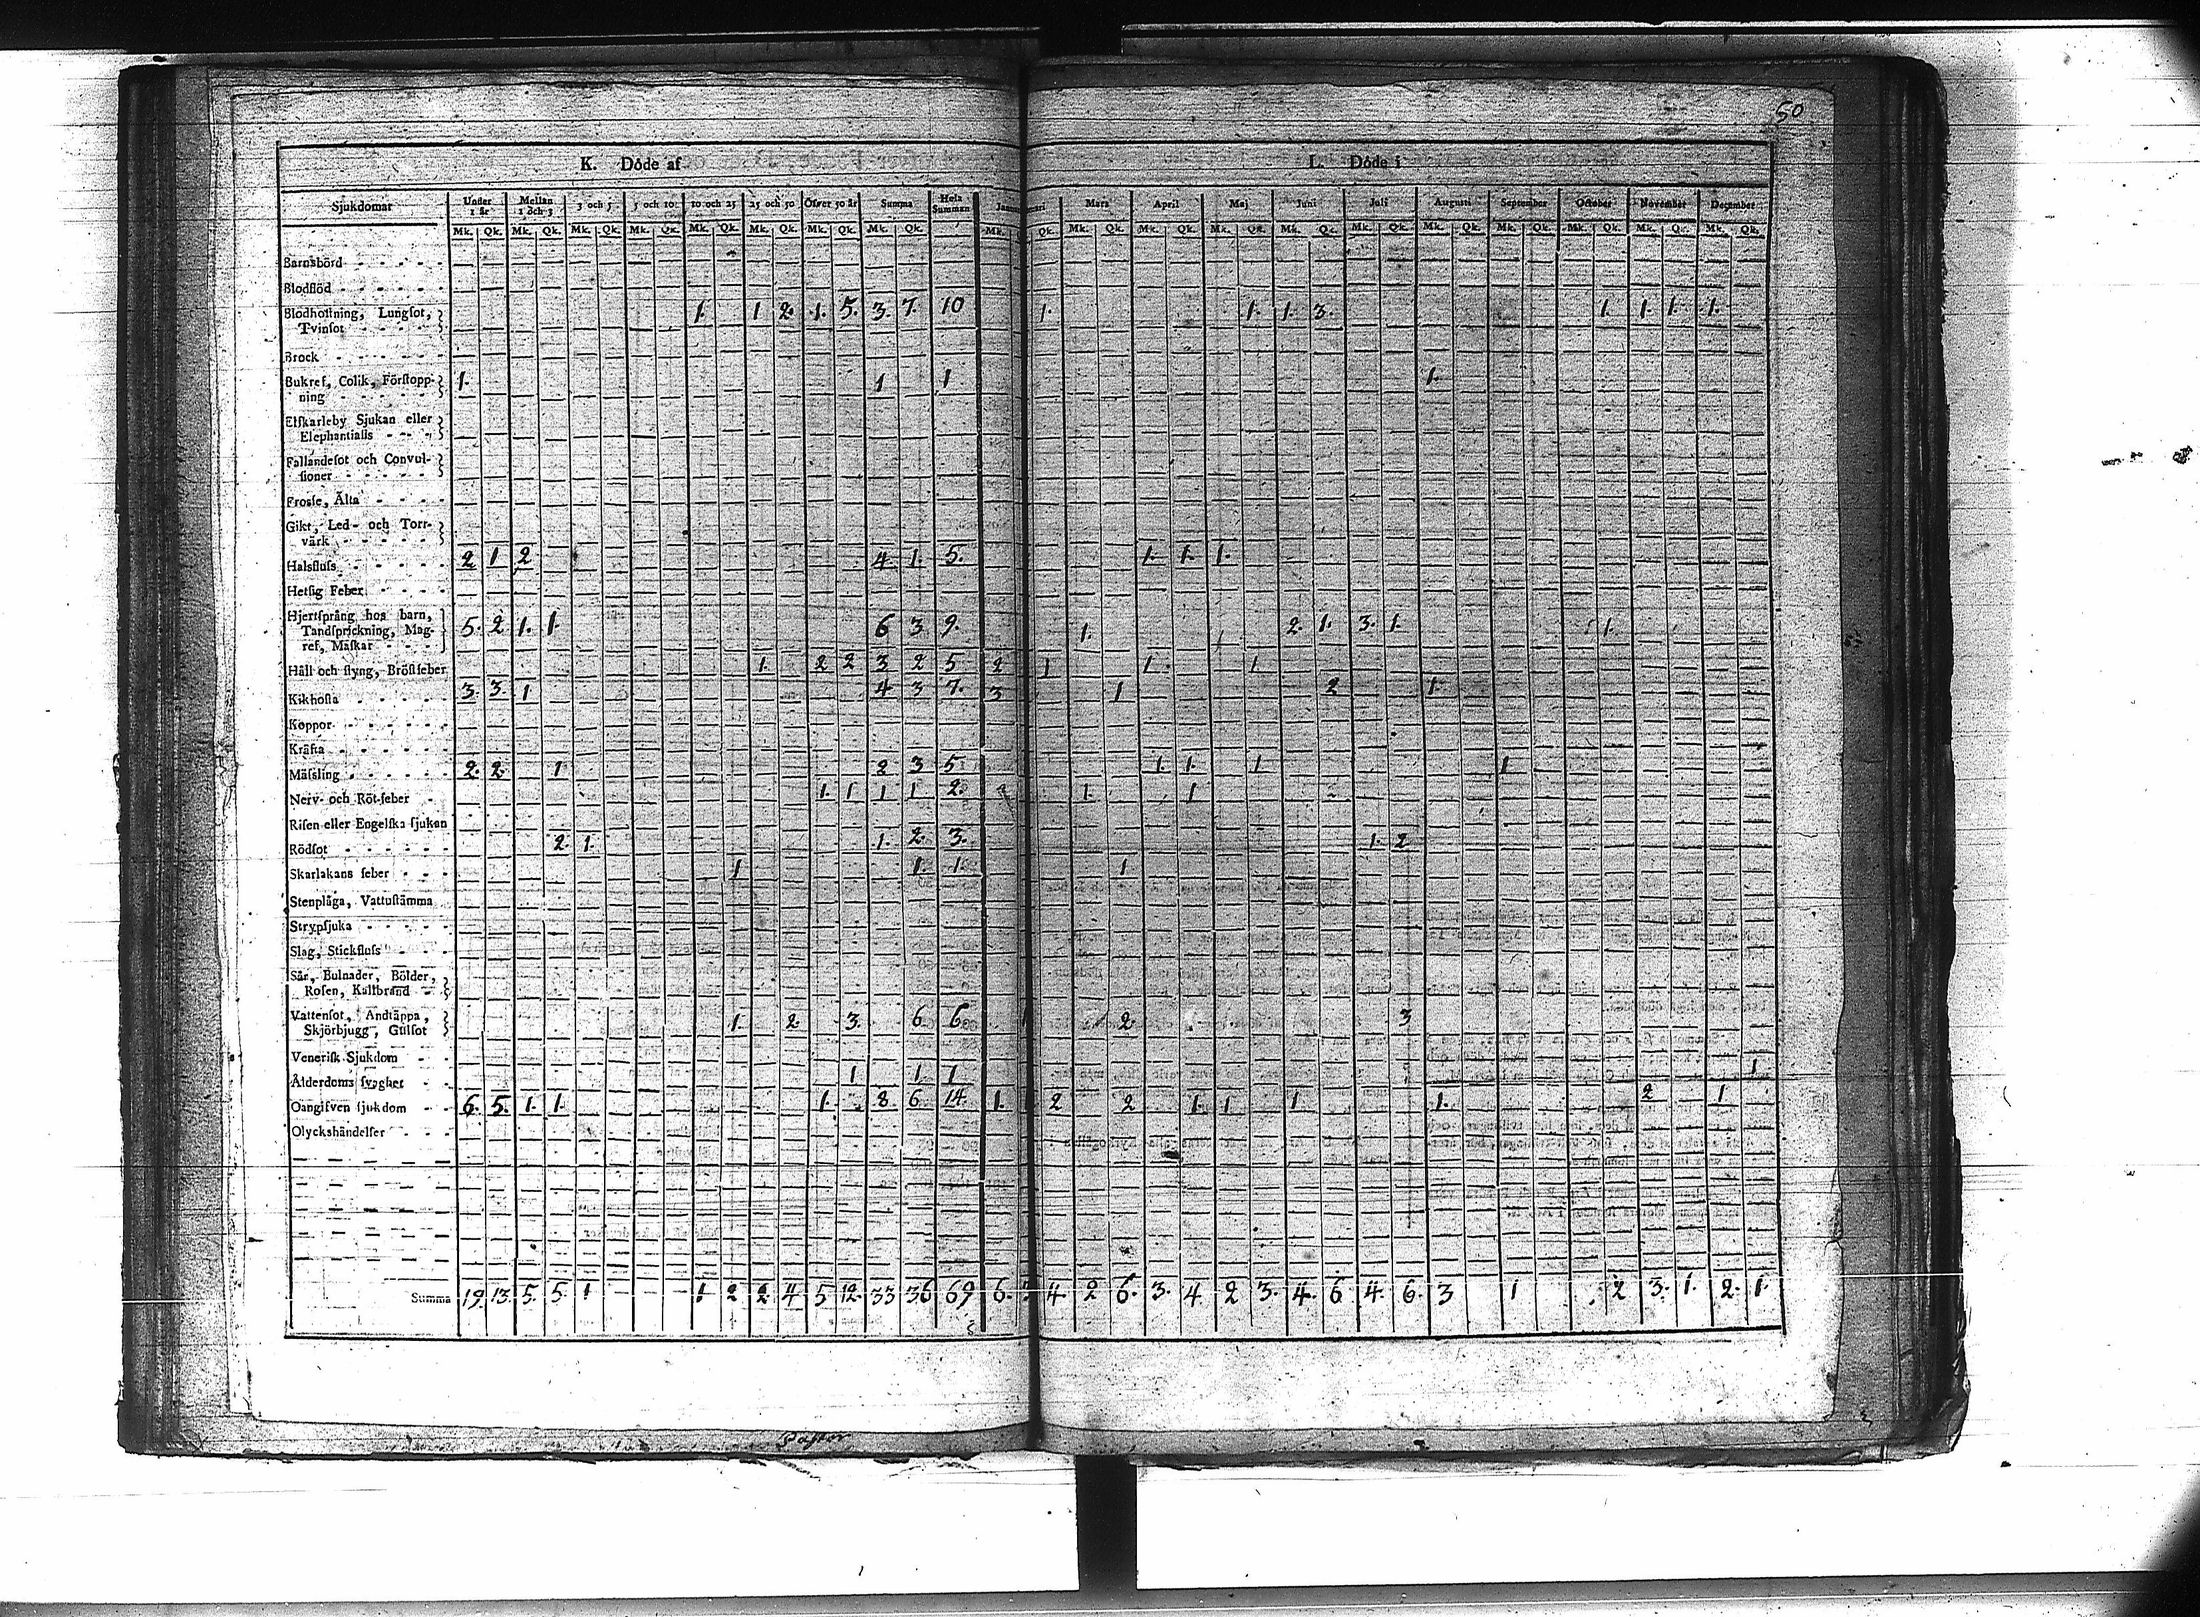 50
K. Döde af L. Döde i
Sjukdomar Under 1 år Mellan 1 och 3 3 och 5 5 och 10 10 och 25 25 och 50 Öfver 50 år Summa Hela Summan Januari Mars April Maj Juni Juli Augusti September October November December
Mk. Qk. Mk. Qk. Mk. Qk. Mk. Qk. Mk. Qk. Mk. Qk. Mk. Qk. Mk. Qk. Mk. Qk. Mk. Qk. Mk. Qk. Mk. Qk. Mk. Qk. Mk. Qk. Mk. Qk. Mk. Qk. Mk. Qk. Mk. Qk. Mk. Qk.
Barnsbörd
Blodflöd
Blodhostning, Lungsot, 1. 1 2. 1. 5. 3. 7. 10 1. 1. 1. 3. 1. 1. 1. 1.
Tvinsot
Brock
Bukref, Colik, Förstopp- 1. 1 1 1.
ning
Elfkarleby Sjukan eller
Elephantiasis
Fallandesot och Convul-
sioner
Frossa, Älta
Gikt, Led- och Torr-
värk
Halsfluss 2 1 2 4. 1. 5. 1. 1. 1.
Hetsig Feber
Hjertsprång hos barn,
Tandsprickning, Mag- 5. 2 1. 1. 6 3 9. 1. 2. 1. 3. 1. 1.
ref, Maskar
Håll och styng, Bröstfeber 1. 2 2 3 2 5 2 1 1. 1
Kikhosta 3. 3. 1 4 3 7. 3 1 2 1.
Koppor
Kräfta
Mässling 2. 2. 1 2 3 5 1. 1. 1 1
Nerv- och Röt-feber 1. 1 1 1 2. 1. 1
Risen eller Engelska sjukan
Rödsot 2. 1. 1. 2. 3. 1. 2
Skarlakans feber 1 1. 1. 1
Stenplåga, Vattustämma
Strypsjuka
Slag, Stickfluss
Sår, Bulnader, Bölder,
Rosen, Kallbrand
Vattensot, Andtäppa, 1. 2. 3. 6. 6. 2 3
Skjörbjugg, Gulsot
Venerisk Sjukdom
Ålderdoms svaghet 1 1 1 1
Oangifven sjukdom 6. 5. 1. 1. 1. 8 6. 14. 1. 2 2 1. 1 1 1. 2 1
Olyckshändelser
Summa 19. 13. 5. 5. 1 1 2 2 4 5 12. 33 36 69 6. 4. 2 6. 3. 4. 2 3. 4. 6 4. 6. 3 1 2 3. 1. 2. 1.
Pastor